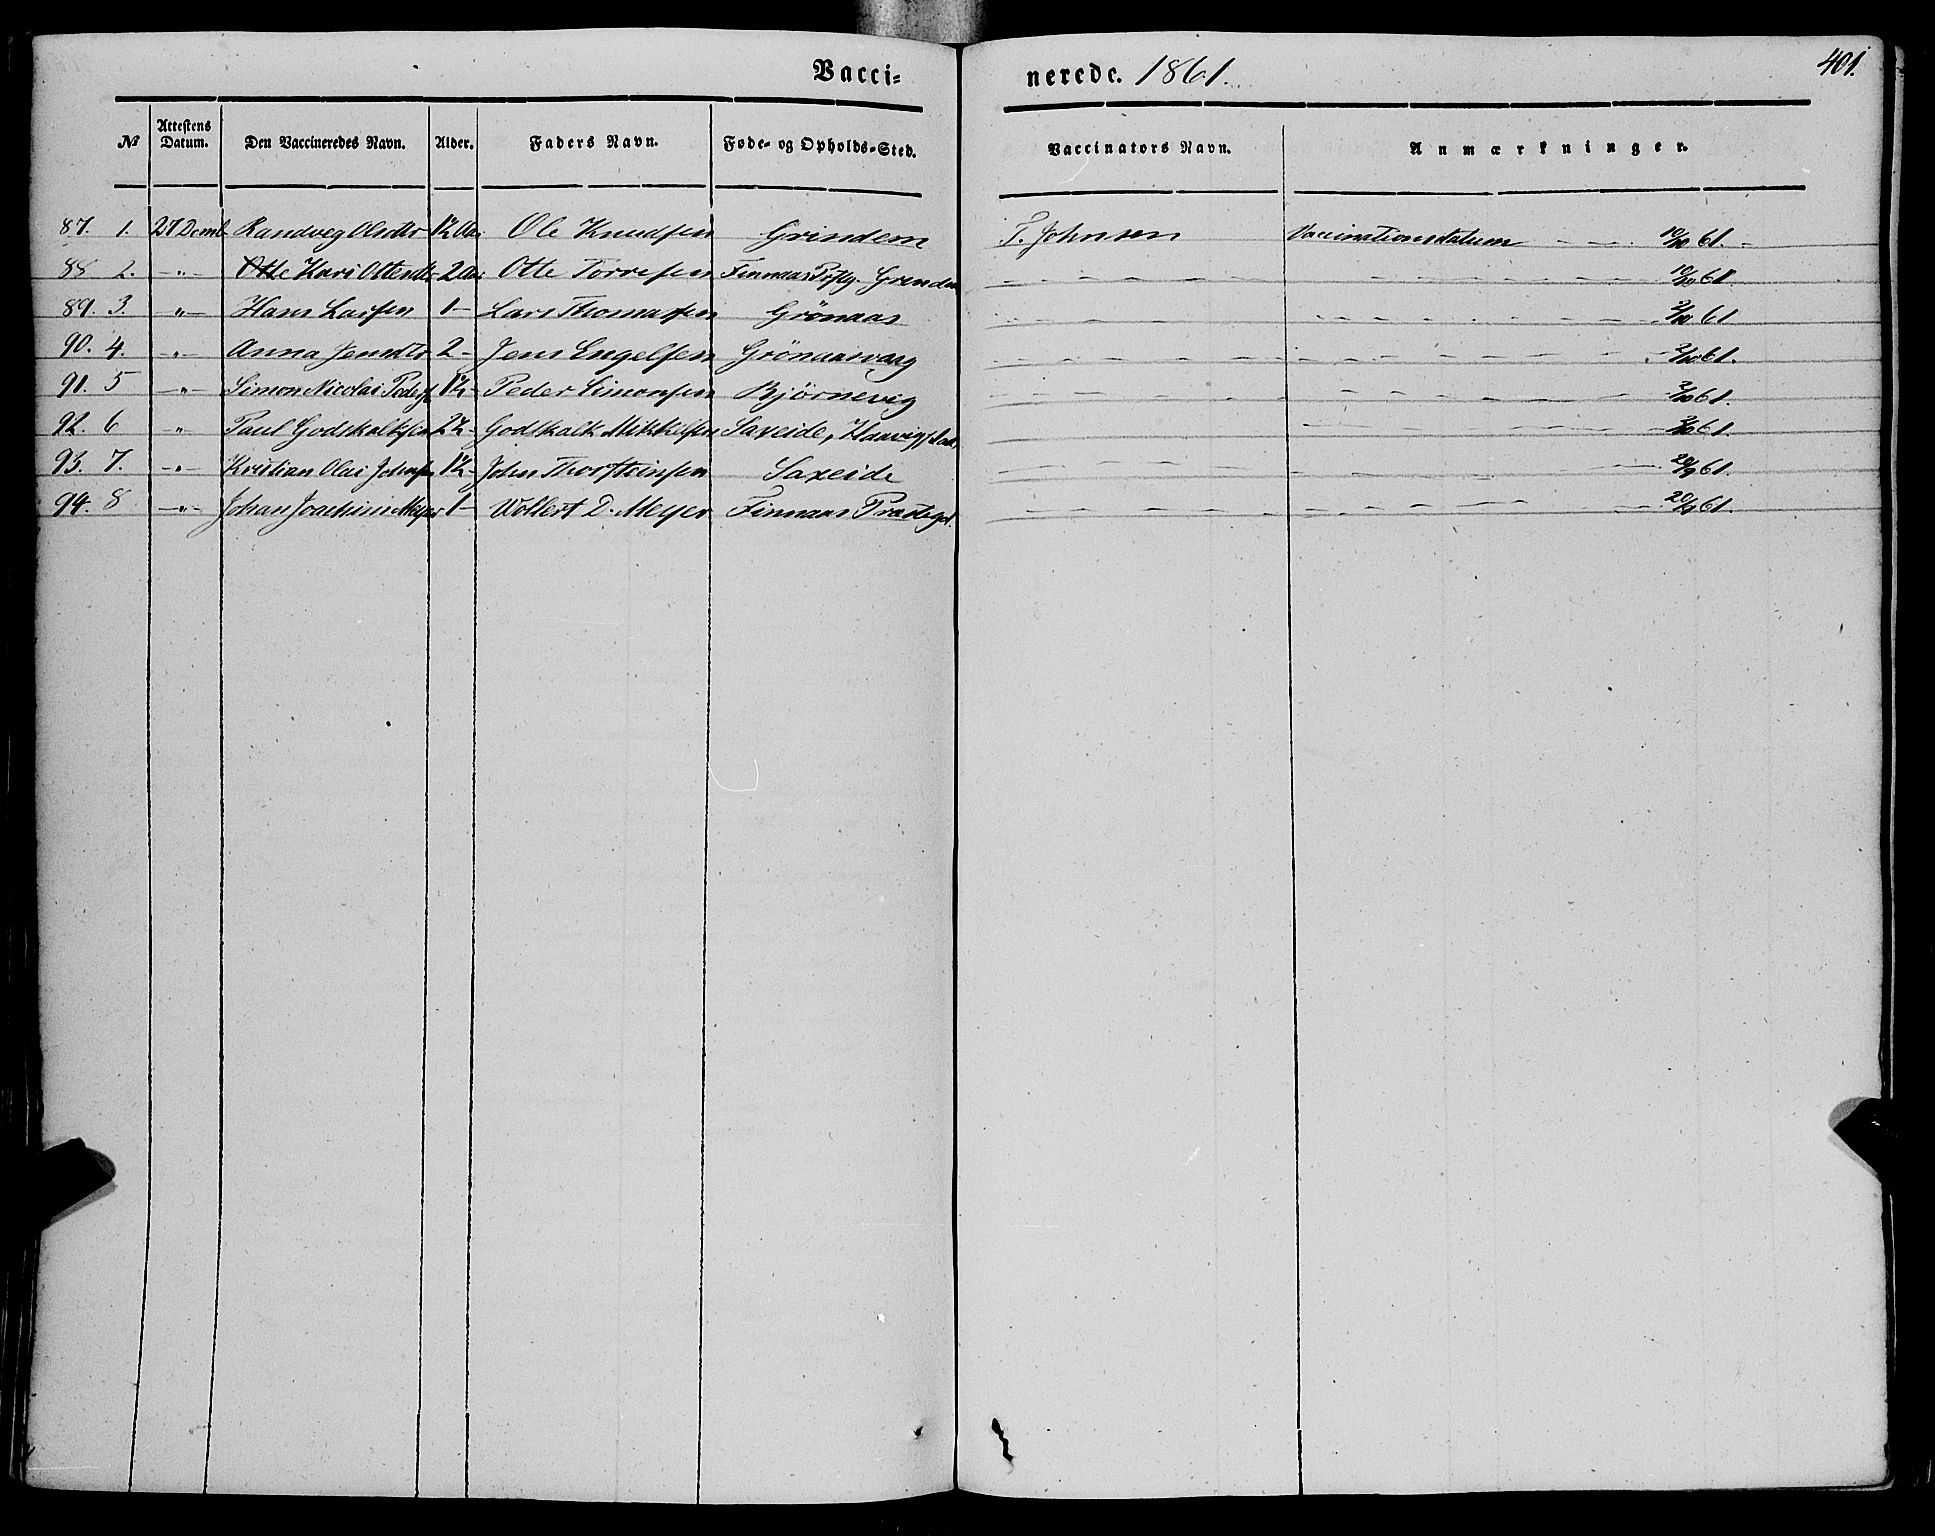 Vacci=
nerede. 1861.
401.
№ Attestens Datum. Den Vaccineredes Navn. Alder. Faders Navn. Føde- og Opholds-Sted. Vaccinators Navn. Anmærkninger.
87. 1. 27 Decmb Randveg Olsdtr 1½ Aar Ole Knudsen Grindem T. Johnsen Vaccinationsdatum 10/10 61.
88 2. -"- Otte Kari Ottesdtr 2 Aar Otte Torresen Finnaas Prstg. Grindem 10/10 61
89. 3. " Hans Larsen 1 - Lars Thomassen Grönaas 3/10 61
90. 4. -"- Anna Jensdtr 2 - Jens Engelsen Grönaasvaag 3/10 61.
91. 5 -"- Simon Nicolai Peders 1½ - Peder Simonsen Björnevig 3/10 61.
92. 6 " Paul Godskalksen 2½ - Godskalk Mikkelsen Saxeide, Haavig 3/10 61.
93. 7. -"- Kristian Olai Johnsn 1½ - John Thorsteinsen Saxeide 20/9 61.
94. 8 -"- Johan Joachim Meyer 1 - Wollert D. Meyer Finnaas Præstegd. 20/9 61.